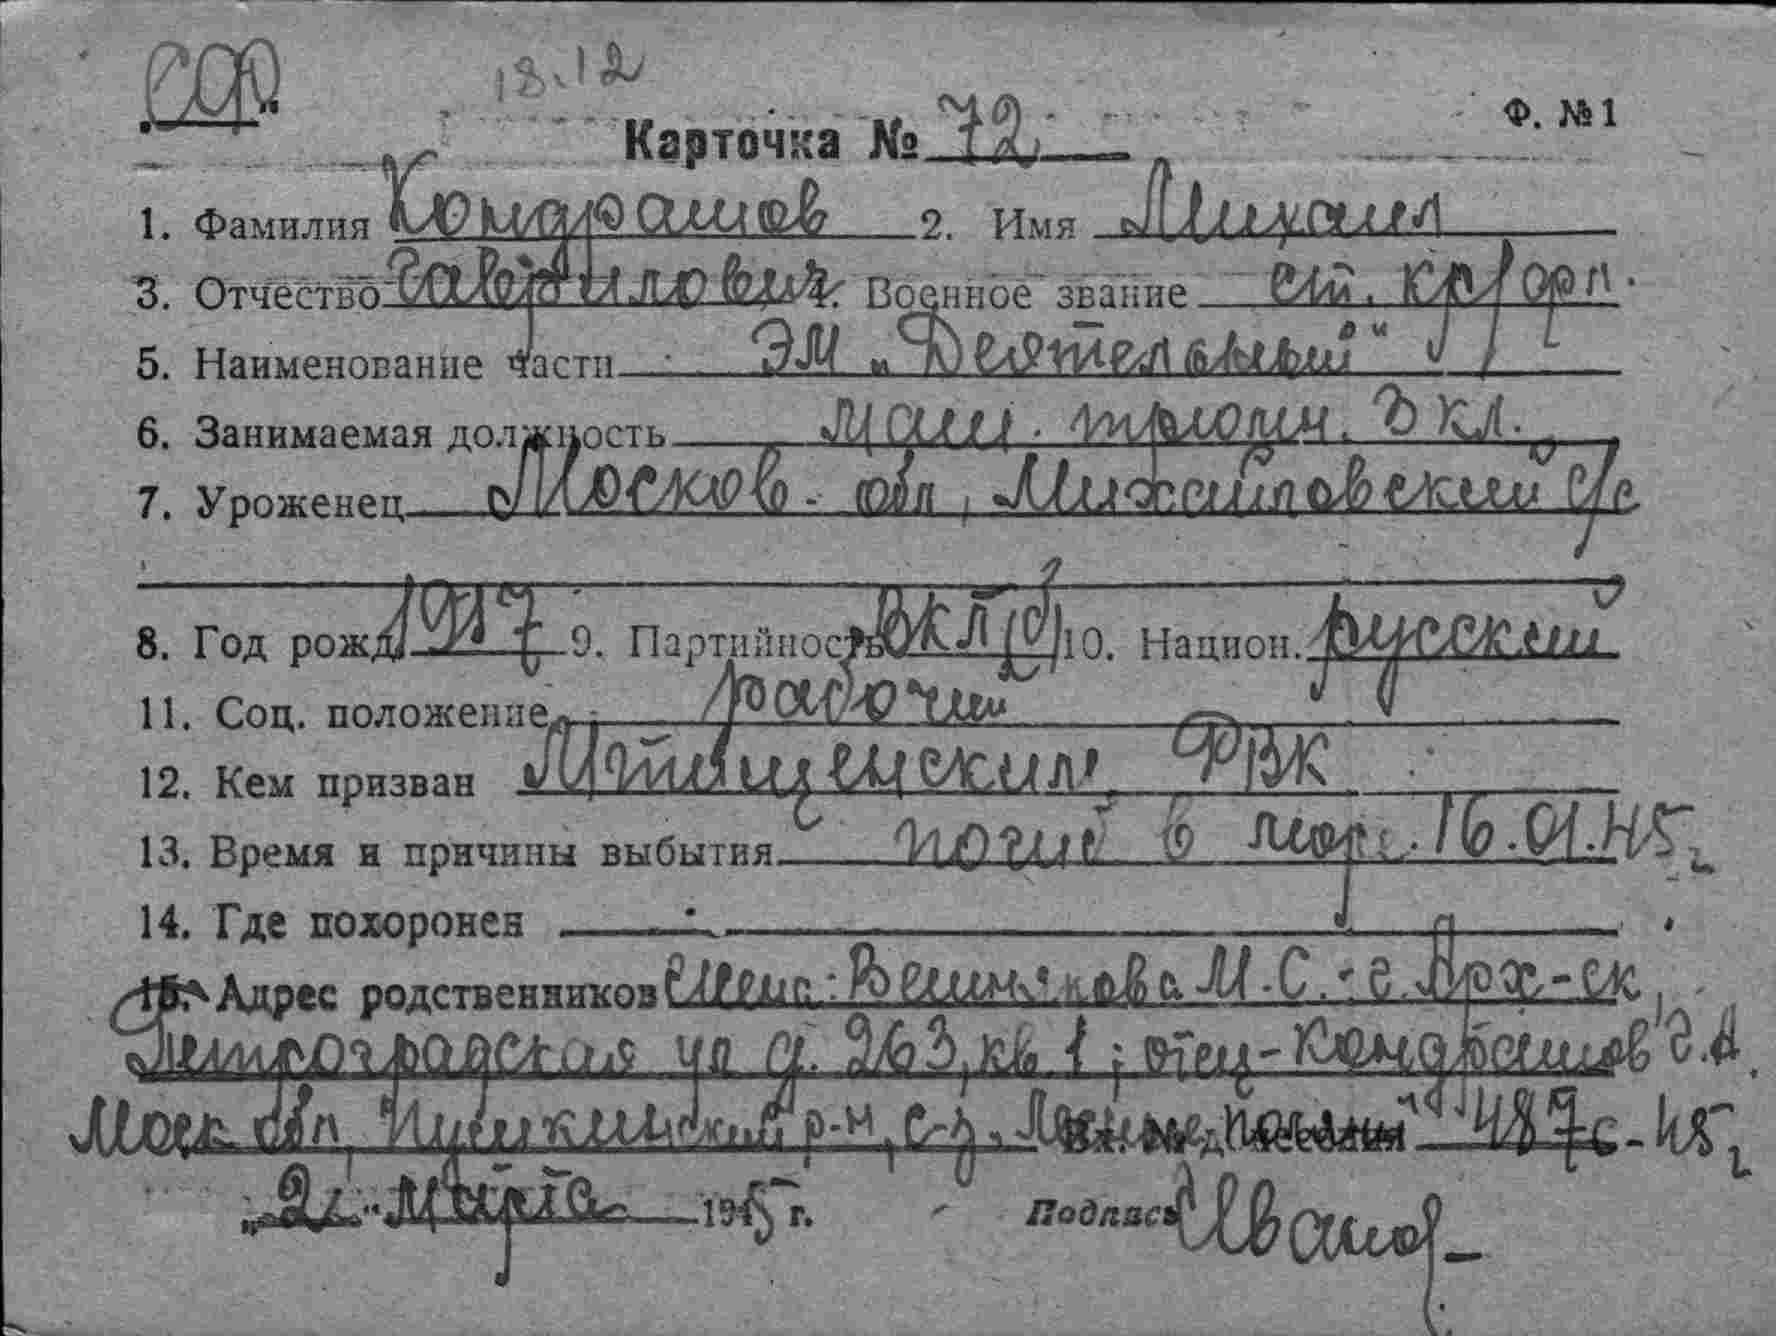 СФ
18.12
Ф. №1
Карточка № 72
1. Фамилия Комарашов 2. Имя Михаил
3. Отчество Гаврилович. Военное звание ст. кр/орл.
5. Наименование части ЭМ „Деятельный"
6. Занимаемая должность маш. трюмн.
7. Уроженец Москов. обл, Михайловский с/с
8. Год рожд. 1917 9. Партийность ВКП(б) 10. Национ. русский
11. Соц. положение рабочий
12. Кем призван Мытищенским РВК
13. Время и причины выбытия погиб в море. 16.01.45г
14. Где похоронен
15. Адрес родственников жена: М.С. - г. Арх-ск
Петроградская ул д. 263, кв 1; отец - Комарашов Г.А.
Моск обл, Пушкинский р-н, с-з 487с-45г
„2" марта 1945 г. Подпись Иванов